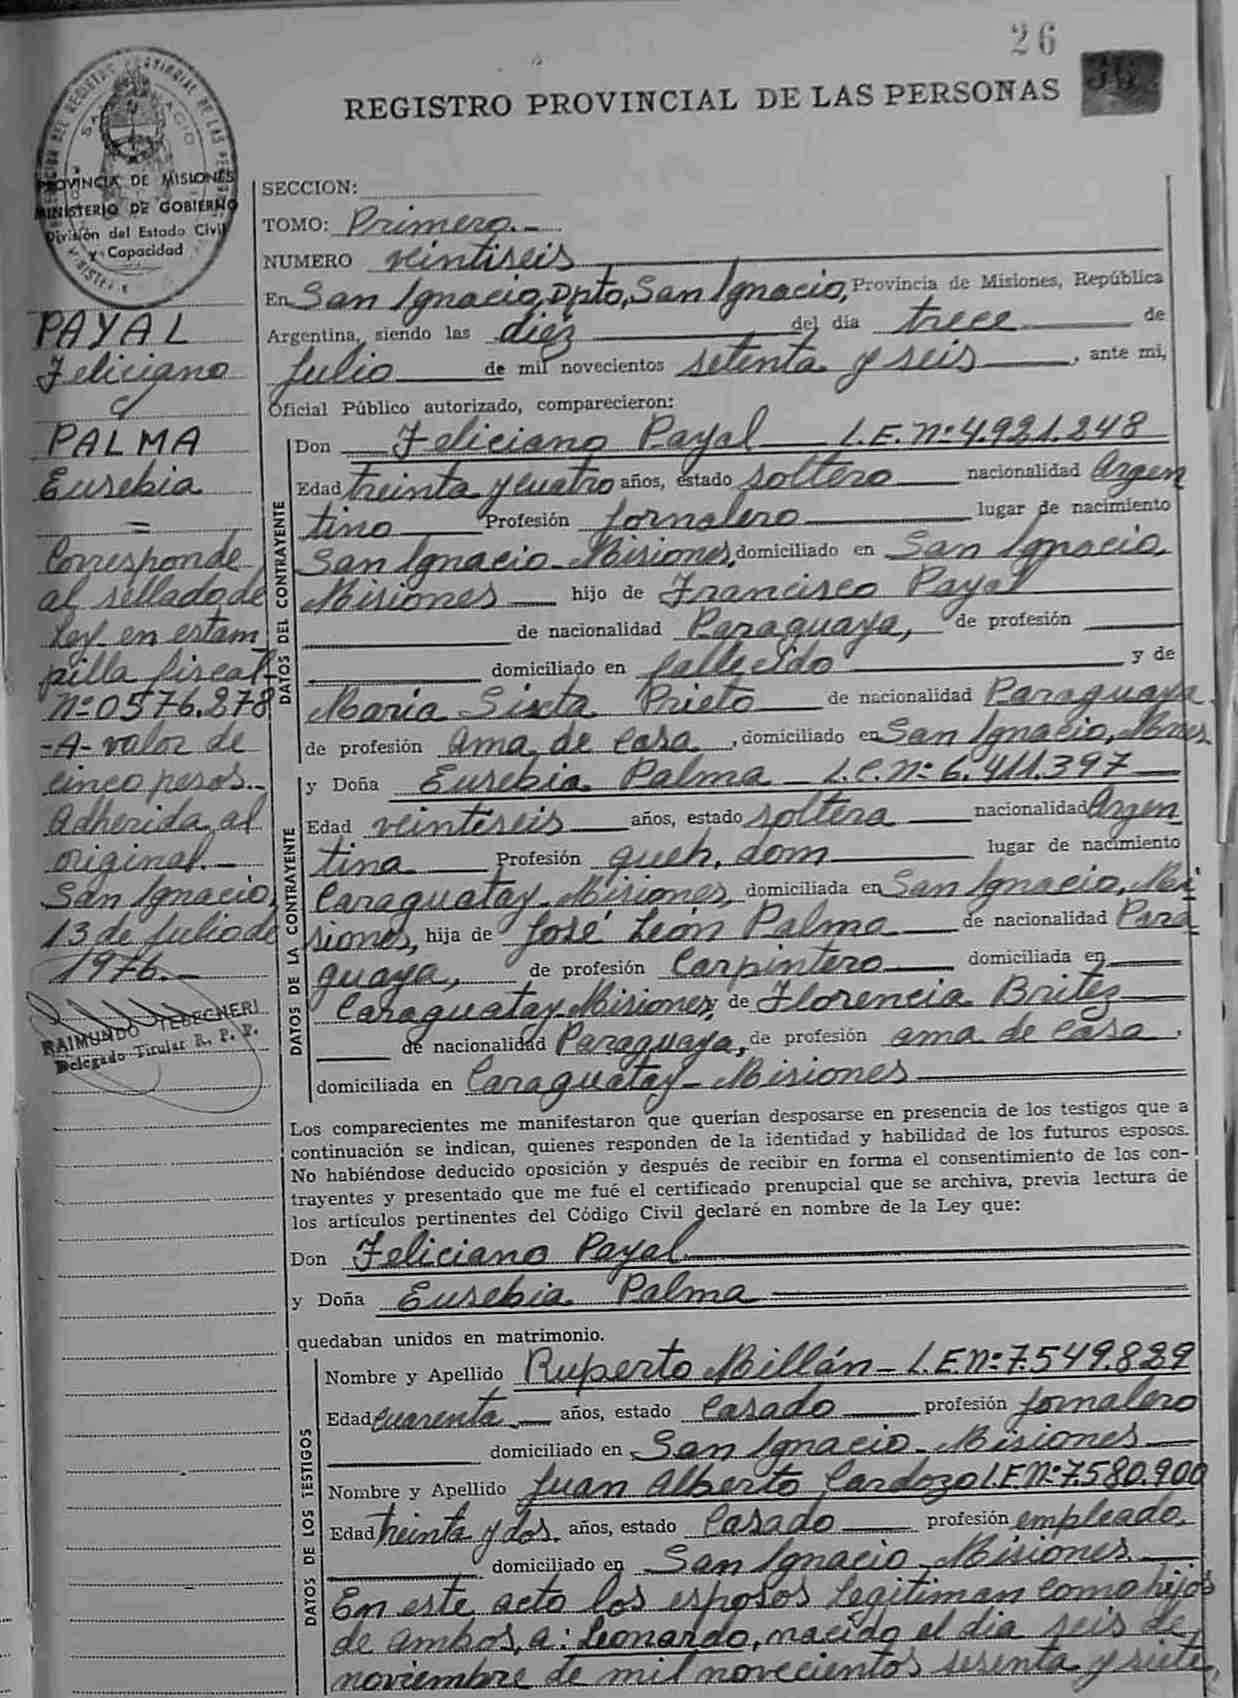 26
REGISTRO PROVINCIAL DE LAS PERSONAS
PROVINCIA DE MISIONES
MINISTERIO DE GOBIERNO
División del Estado Civil
y Capacidad
SECCION:
TOMO: Primero.-
NUMERO veintiseis
En San Ignacio, Dpto, San Ignacio, Provincia de Misiones, República
Argentina, siendo las diez del día trece de
Julio de mil novecientos setenta y seis, ante mi,
Oficial Público autorizado, comparecieron:
PAYAL
Feliciano
y
PALMA
Eusebia
=
Corresponde
al sellado de
Ley en estam
pilla fiscal
Nº 0576.278
-A- valor de
cinco pesos.-
Adherida al
original.-
San Ignacio,
13 de Julio de
1976.-
RAIMUNDO TEDECHERI
Delegado Titular R. P. P.
DATOS DEL CONTRAYENTE
Don Feliciano Payal L.E. nº 4.921.248
Edad treinta y cuatro años, estado soltero nacionalidad Argen
tino Profesión Jornalero lugar de nacimiento
San Ignacio - Misiones, domiciliado en San Ignacio,
Misiones hijo de Francisco Payal
de nacionalidad Paraguaya, de profesión
domiciliado en fallecido y de
María Sixta Prieto de nacionalidad Paraguaya
de profesión ama de casa, domiciliado en San Ignacio, Mnes
DATOS DE LA CONTRAYENTE
y Doña Eusebia Palma - L.C. nº 6.411.397
Edad veintiseis años, estado soltera nacionalidad Argen
tina Profesión queh, dom lugar de nacimiento
Caraguatay - Misiones, domiciliada en San Ignacio, Mi
siones, hija de José León Palma de nacionalidad Para
guaya, de profesión Carpintero domiciliada en
Caraguatay Misiones y de Florencia Britez
de nacionalidad Paraguaya, de profesión ama de casa,
domiciliada en Caraguatay - Misiones
Los comparecientes me manifestaron que querían desposarse en presencia de los testigos que a
continuación se indican, quienes responden de la identidad y habilidad de los futuros esposos.
No habiéndose deducido oposición y después de recibir en forma el consentimiento de los con-
trayentes y presentado que me fué el certificado prenupcial que se archiva, previa lectura de
los artículos pertinentes del Código Civil declaré en nombre de la Ley que:
Don Feliciano Payal
y Doña Eusebia Palma
quedaban unidos en matrimonio.
DATOS DE LOS TESTIGOS
Nombre y Apellido Ruperto Millán - L.E. nº 7.549.829
Edad cuarenta años, estado casado profesión Jornalero
domiciliado en San Ignacio - Misiones
Nombre y Apellido Juan Alberto Cardozo L.E. Nº 7.580.900
Edad treinta y dos. años, estado casado profesión empleado.
domiciliado en San Ignacio - Misiones.
En este acto los esposos Legitiman como hijos
de ambos, a: Leonardo, nacido el dia seis de
noviembre de mil novecientos sesenta y siete,